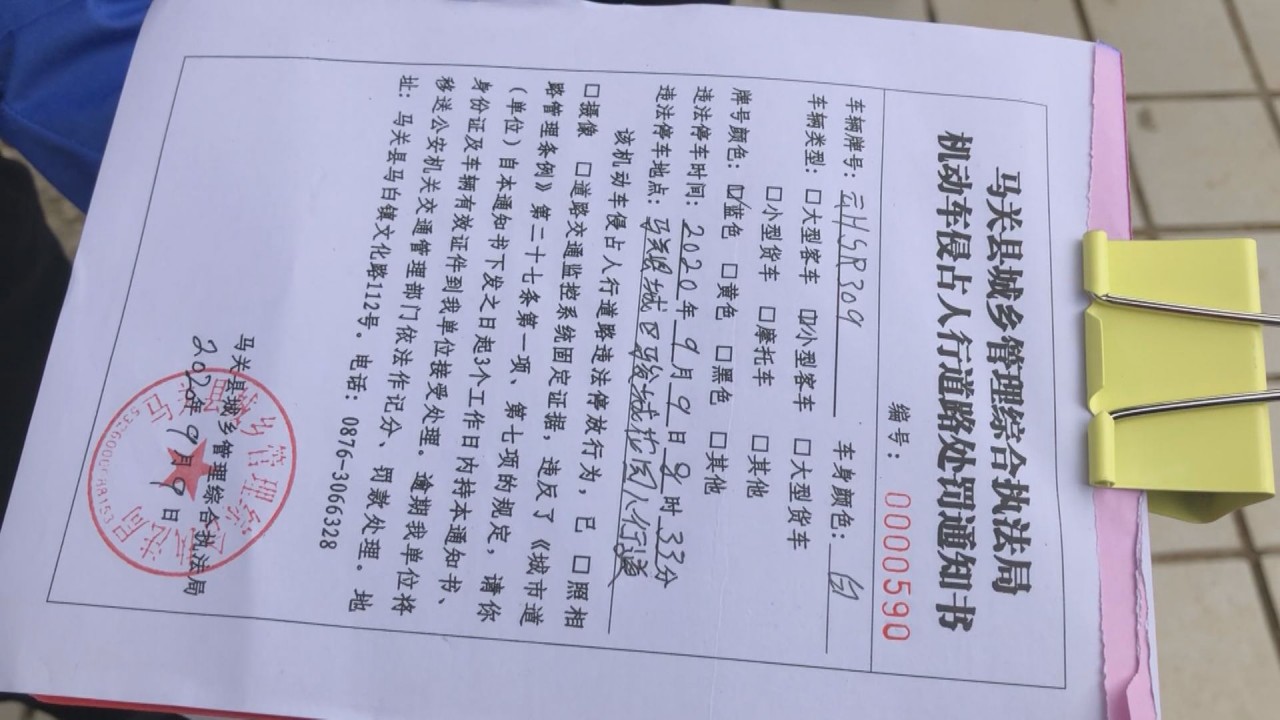 马关县城乡管理综合执法局
机动车侵占人行道路处罚通知书
编号：0000590
车辆牌号：云HSR309 车身颜色：白
车辆类型：□大型客车 ☑小型客车 □大型货车
□小型货车 □摩托车 □其他
牌号颜色：☑蓝色 □黄色 □黑色 □其他
违法停车时间：2020年9月9日9时33分
违法停车地点：马关县城区骏城花园人行道
该机动车侵占人行道路违法停放行为，已 □照相
□摄像 □道路交通监控系统固定证据，违反了《城市道
路管理条例》第二十七条第一项、第七项的规定，请你
（单位）自本通知书下发之日起3个工作日内持本通知书、
身份证及车辆有效证件到我单位接受处理。逾期我单位将
移送公安机关交通管理部门依法作记分、罚款处理。地
址：马关县马白镇文化路112号。电话：0876-3066328
马关县城乡管理综合执法局
2020年9月9日